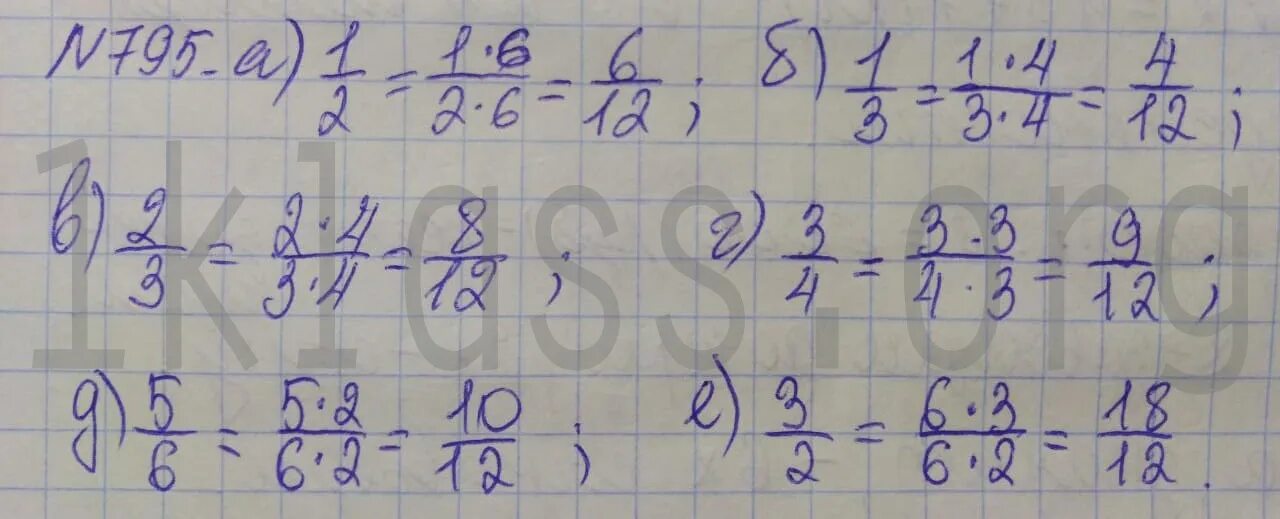 N795. а) 1/2 = 1·6/2·6 = 6/12 ; б) 1/3 = 1·4/3·4 = 4/12 ;
в) 2/3 = 2·4/3·4 = 8/12 ; г) 3/4 = 3·3/4·3 = 9/12 ;
д) 5/6 = 5·2/6·2 = 10/12 ; е) 3/2 = 6·3/6·2 = 18/12 .
1klass.org